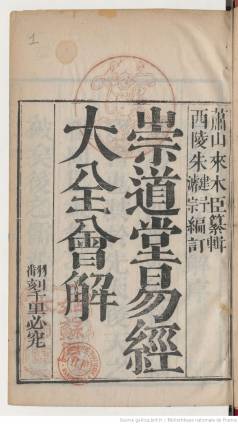 蕭山來木臣纂輯
西陵朱
宗編訂
崇道堂易經
大全會解
翻刻千里必究
1
Source gallica.bnf.fr / Bibliothèque nationale de France